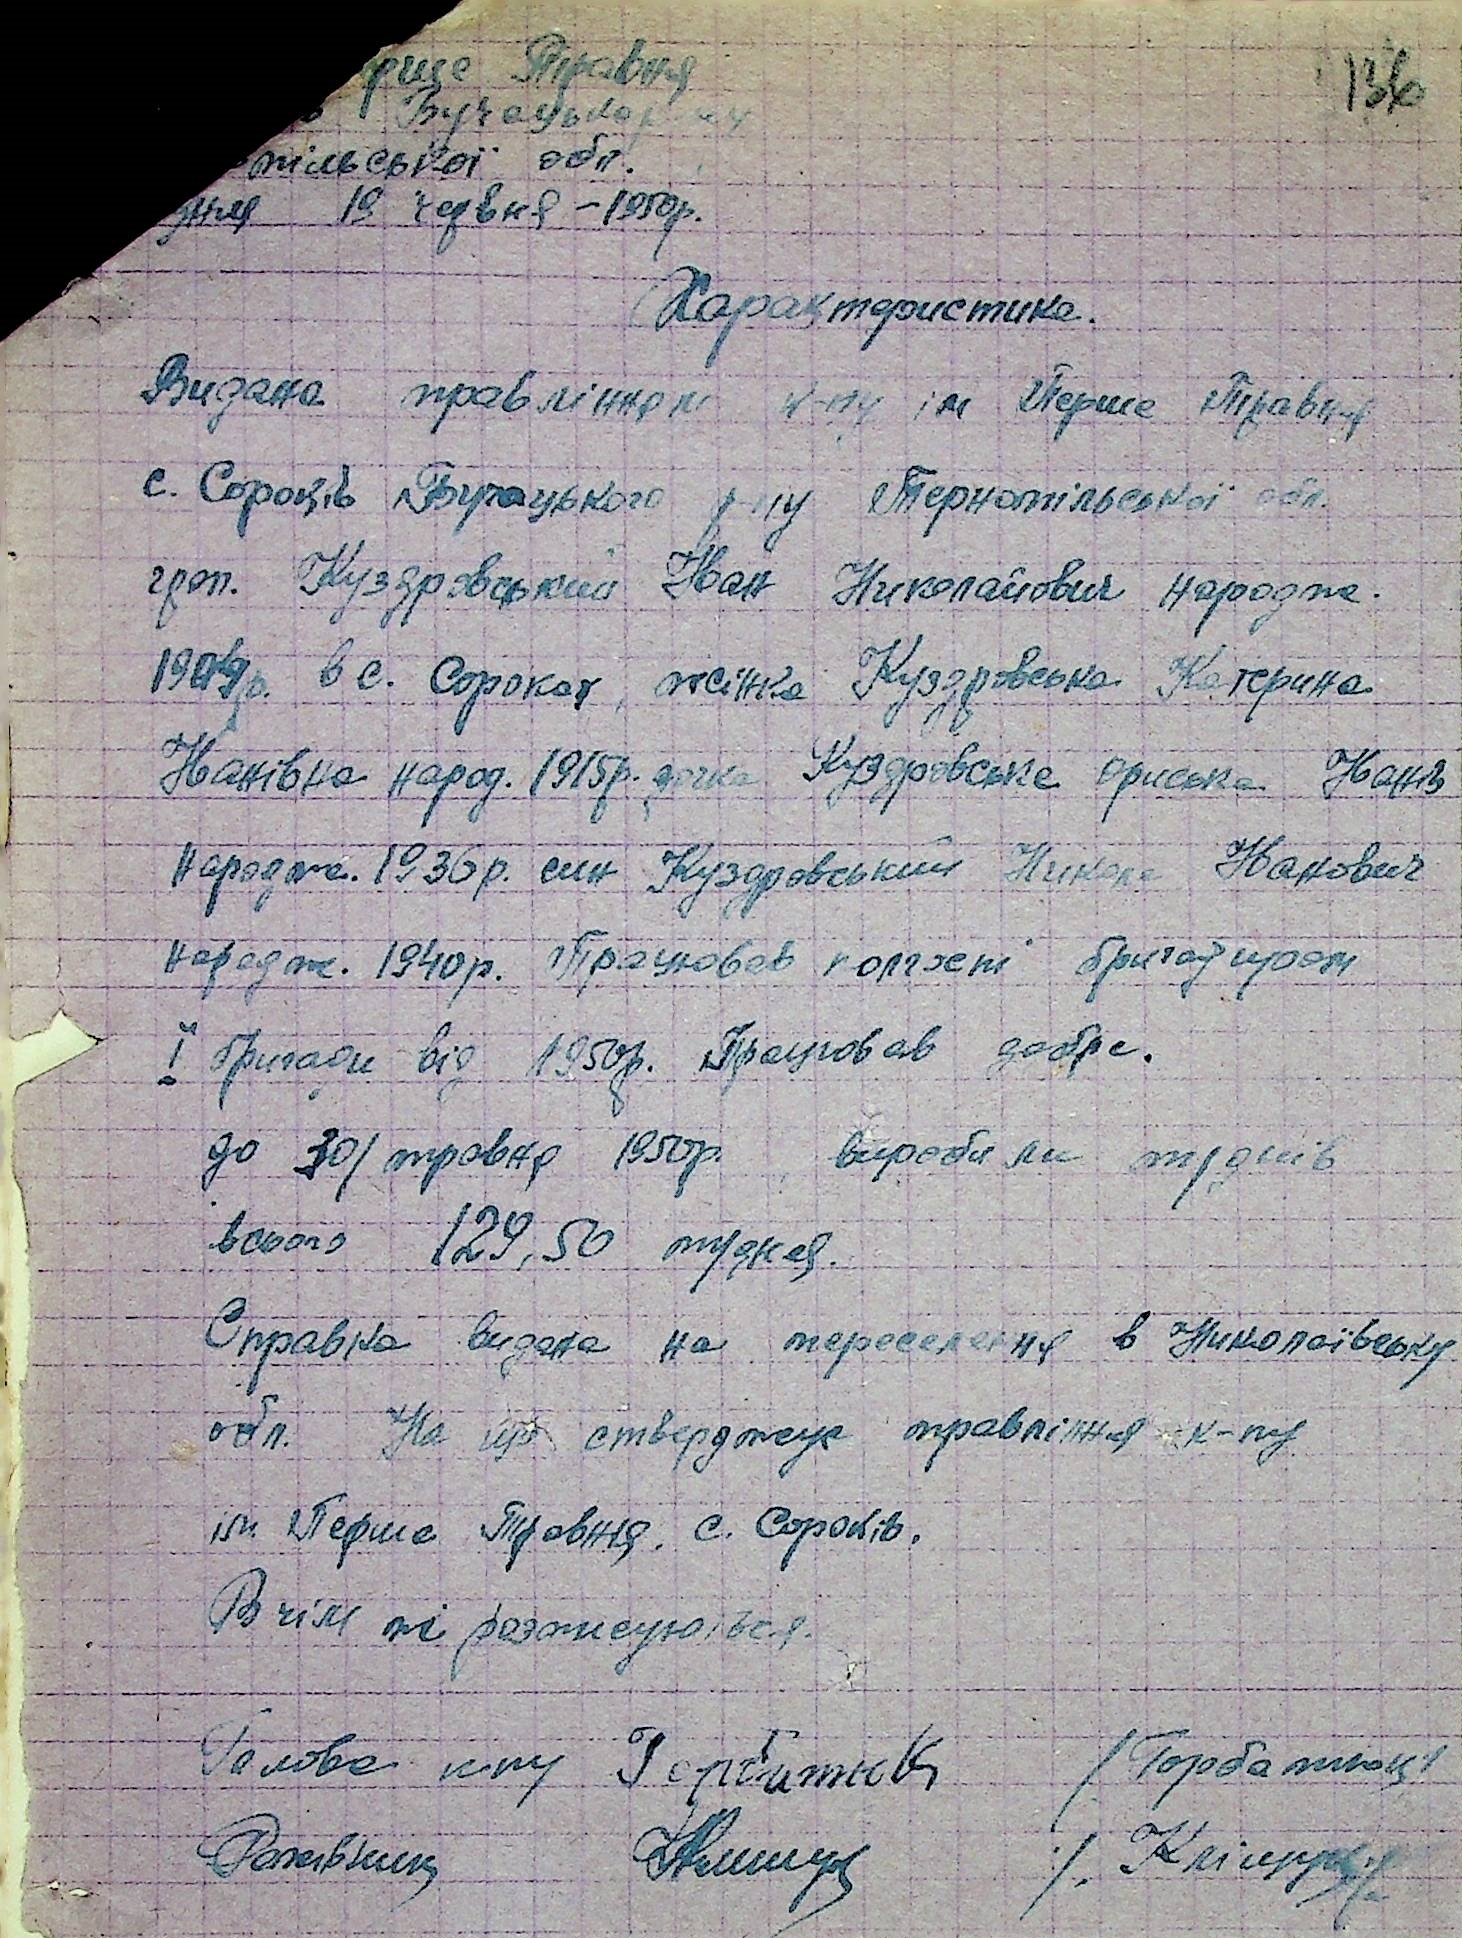 136
рше Травня
Бучацького р-ну
пільської обл.
дня 19 червня – 1950р.
Характеристика.
Видана правлінням к-пу ім Перше Травня
с. Сороків Бучацького р-ну Тернопільської обл.
гром. Куздровський Іван Николайович народже.
р. в с. Сороках, жінка Куздровська Катерина
Іванівна народ. 1915р. дочка Куздровська Ориська Іванів
народже. 1936р. син Куздровський Никола Іванович
народже. 1940р. Працював колгоспі бригадиром
ІЇ бригади від 1950р. Працював добре.
до 30/травня 1950р. виробили труднів
всього 129,50 трудня.
Справка видана на переселення в Николаївську
обл. На що стверджує правління к-пу
ім. Перше Травня. с. Сороків.
В чім ті розписуються.
Голова к-пу Горбатюк /Горбатюк/
Рахівник /. Кліщук/